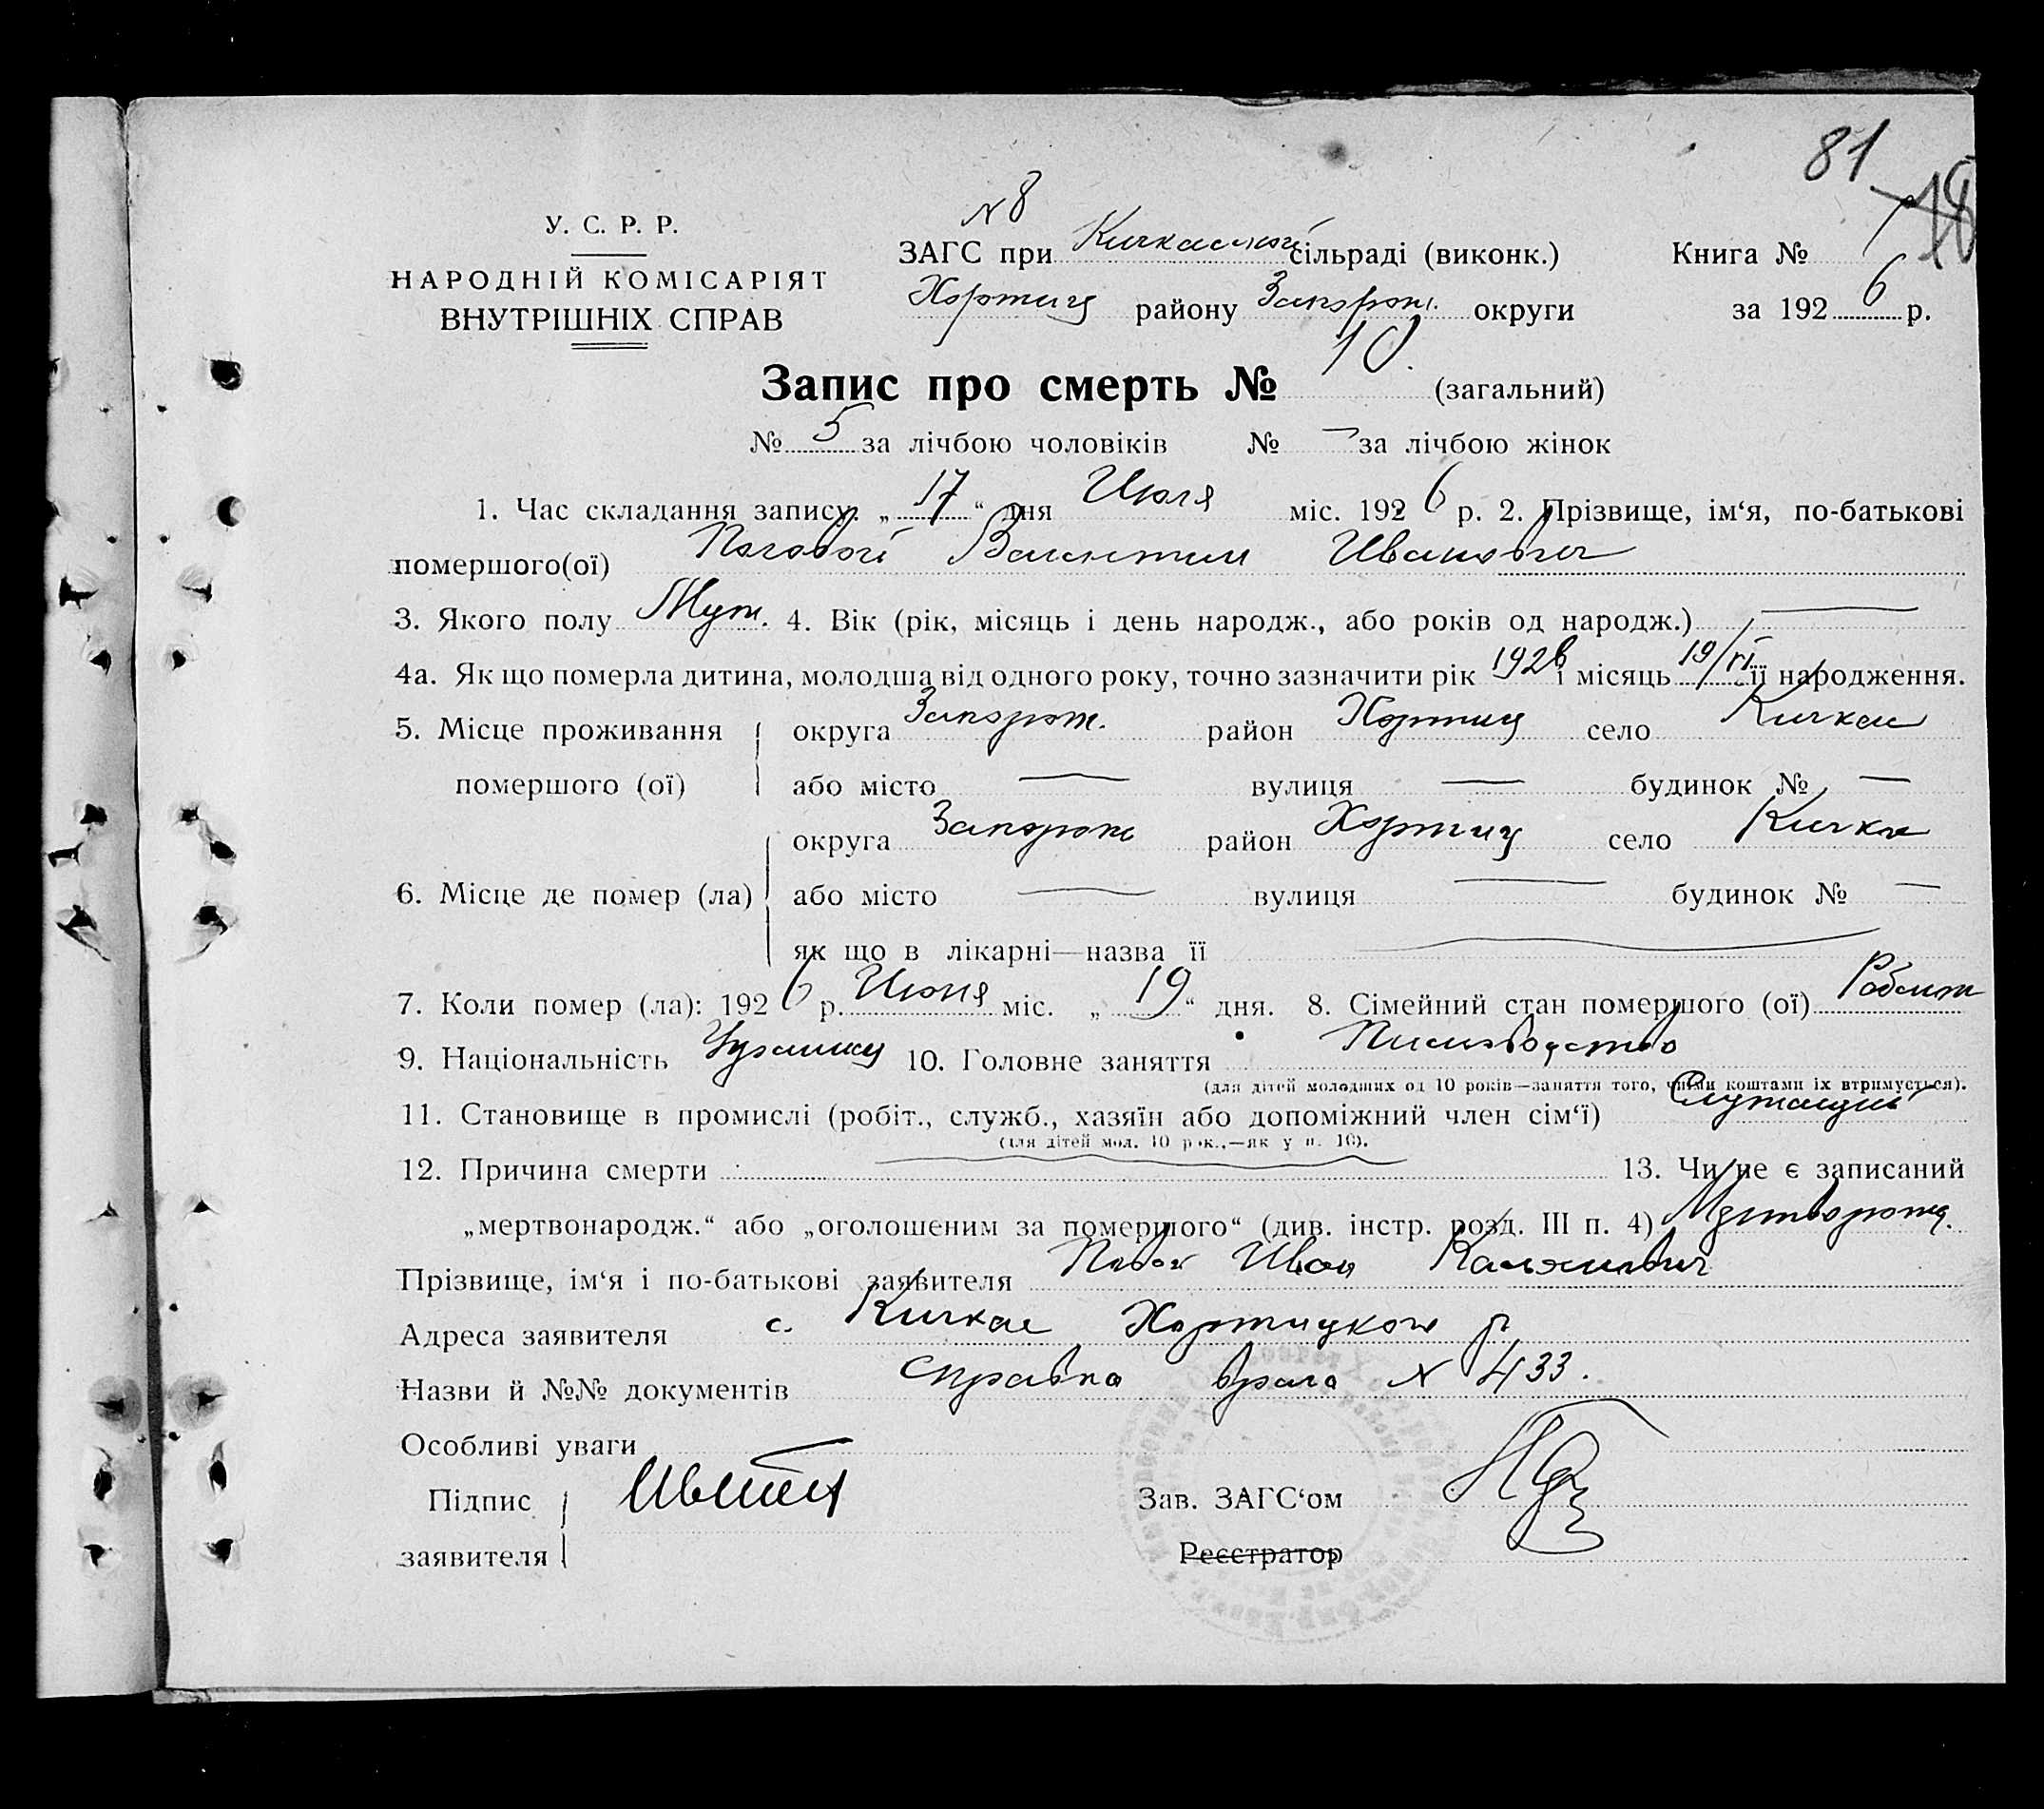 81
У. С. Р. Р.
НАРОДНІЙ КОМІСАРІЯТ
ВНУТРІШНІХ СПРАВ
N 8
ЗАГС при Кичкаської сільраді (виконк.) Книга №
Хортиц району Запорож. округи за 1926 р.
Запис про смерть № 10. (загальний)
№ 5 за лічбою чоловіків № — за лічбою жінок
1. Час складання запису. „17“ дня Июля міс. 1926 р. 2. Прізвище, ім‘я, по-батькові
помершого(ої) Валентин Иванович
3. Якого полу Муж. 4. Вік (рік, місяць і день народж., або років од народж.) —
4а. Як що померла дитина, молодша від одного року, точно зазначити рік 1926 і місяць 19/VI її народження.
5. Місце проживання округа Запорож. район Хортиц село Кичкас
помершого (ої) або місто — вулиця — будинок № —
округа Запорож район Хортиц село Кичкас
6. Місце де помер (ла) або місто — вулиця — будинок № —
як що в лікарні—назва її —
7. Коли помер (ла): 1926 р. Июня міс. „19“ дня. 8. Сімейний стан помершого (ої)
9. Національність 10. Головне заняття
(для дітей молодших од 10 років—заняття того, чиїми коштами їх втримується).
11. Становище в промислі (робіт., служб., хазяїн або допоміжний член сім‘ї) Служащий
(для дітей мол. 10 рок.,—як у п. 10).
12. Причина смерти — 13. Чи не є записаний
„мертвонародж.“ або „оголошеним за помершого“ (див. інстр. розд. III п. 4) Мертворожд.
Прізвище, ім‘я і по-батькові заявителя Иван
Адреса заявителя с. Кичкас Хортицкого р
Назви й №№ документів справка врача N 433.
Особливі уваги
Підпис
заявителя
Зав. ЗАГС‘ом
Реєстратор